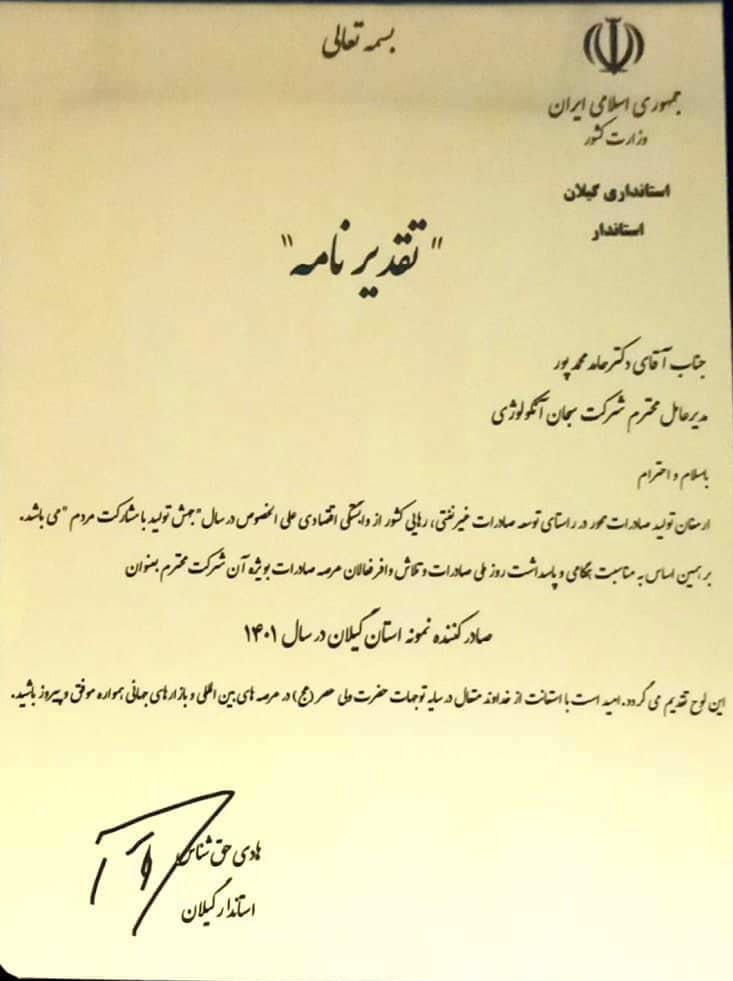 بسمه تعالی
جمهوری اسلامی ایران
وزارت کشور
استانداری گیلان
استاندار
"تقدیر نامه"
جناب آقای دکتر حامد محمد پور
مدیرعامل محترم شرکت سبحان آنکولوژی
باسلام و احترام
ارمغان تولید صادرات محور در راستای توسعه صادرات غیرنفتی، رهایی کشور از وابستگی اقتصادی علی الخصوص در سال "جهش تولید با مشارکت مردم" می باشد.
بر همین اساس به مناسبت بهگامی و پاسداشت روز ملی صادرات و تلاش وافر فعالان عرصه صادرات بویژه آن شرکت محترم بعنوان
صادر کننده نمونه استان گیلان در سال ۱۴۰۱
این لوح تقدیم می گردد. امید است با استعانت از خداوند متعال در سایه توجهات حضرت ولی عصر (عج) در عرصه های بین المللی و بازارهای جهانی همواره موفق و پیروز باشید.
هادی حق شناس
استاندار گیلان